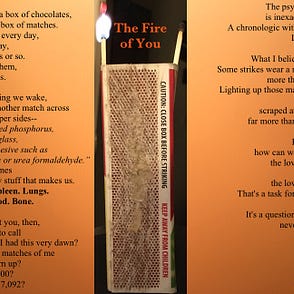 a box of chocolates,
box of matches.
every day,
ay,
s or so.
hem,
s.
ng we wake,
nother match across
per sides--
ed phosphorus,
glass,
hesive such as
e or urea formaldehyde."
mes
y stuff that makes us.
pleen. Lungs.
od. Bone.
t you, then,
to call
I had this very dawn?
matches of me
rn up?
00?
7,092?
The Fire
of You
CAUTION: CLOSE BOX BEFORE STRIKING
KEEP AWAY FROM CHILDREN
The psy
is inexa
A chronologic wit
L
What I belie
Some strikes wear a r
more th
Lighting up those ma
scraped a
far more than
i
how can w
the lov
the lov
That's a task for
It's a question
neve